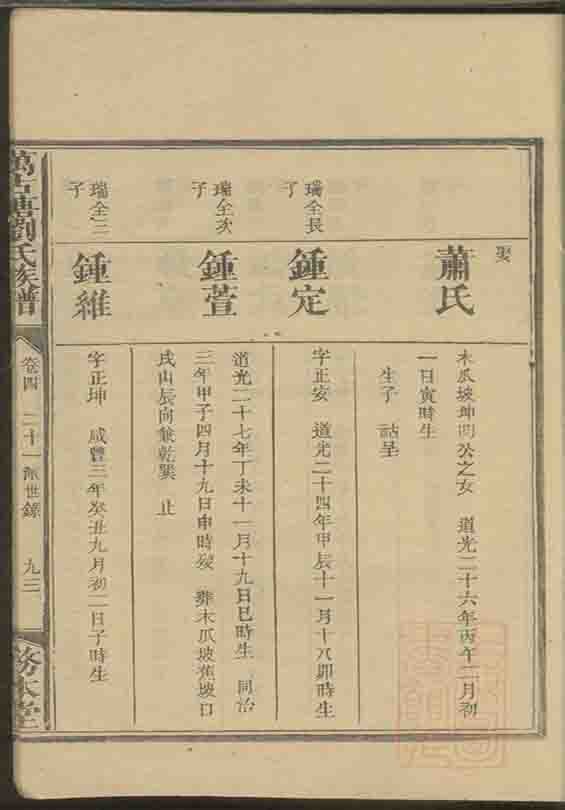 娶
蕭氏
木瓜坡坤閏公之女 道光二十六年丙午二月初
一日寅時生
生子 詁呈
瑞全長
子
鍾定
字正安 道光二十四年甲辰十一月十八卯時生
瑞全次
子
鍾萱
道光二十七年丁未十一月十九日巳時生 同治
三年甲子四月十九日申時歿 葬木瓜坡蕉坡口
戌山辰向兼乾巽 止
瑞全三
子
鍾維
字正坤 咸豐三年癸丑九月初二日子時生
劉氏族譜
卷四 二十一派世錄 九三
務本堂